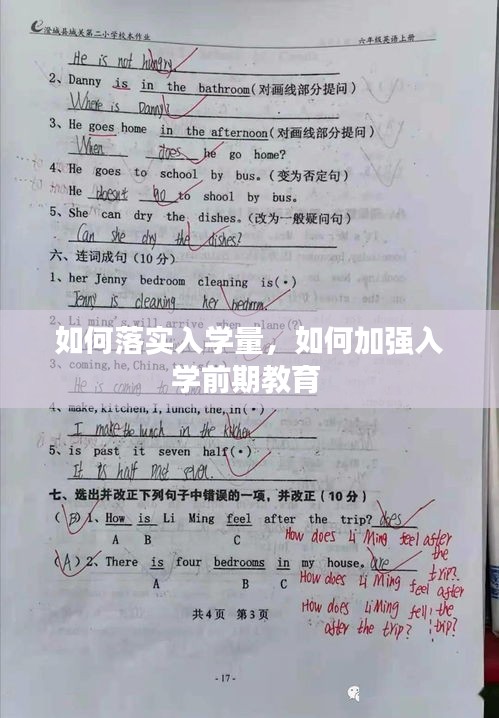 澄城县城关第二小学校本作业 六年级英语上册
He is not hungry
2、Danny is in the bathroom(对画线部分提问)
Where is Danny?
3、He goes home in the afternoon(对画线部分提问)
When does he go home?
4、He goes to school by bus.(变为否定句)
He doesnt go to shool by bus.
5、She can dry the dishes.(改为一般疑问句)
Can she dry the dishes?
六、连词成句(10分)
1. her Jenny bedroom cleaning is(•)
Jenny is cleaning her bedroom.
2. Li ming's,will,arrive,when,plane(?)
如何落实入学量，如何加强入
学前期教育
3、coming,he,China,
He is coming to
4、make,kitchen,I,lunch,the,in(•)
I make the lunch in the kitchen
5、is past it seven half(•)
It is half past seven.
七、选出并改正下列句子中错误的一项,并改正(10分)
(B)1、How is Li Ming feel after the trip? does
A B C
How does Li Ming feel after the trip?
(A)2、There is four bedrooms in my house. are
A B C
How does Li Ming feel after the trip?
How does Li Ming fell after the trip?
共4页 第3页
-17-